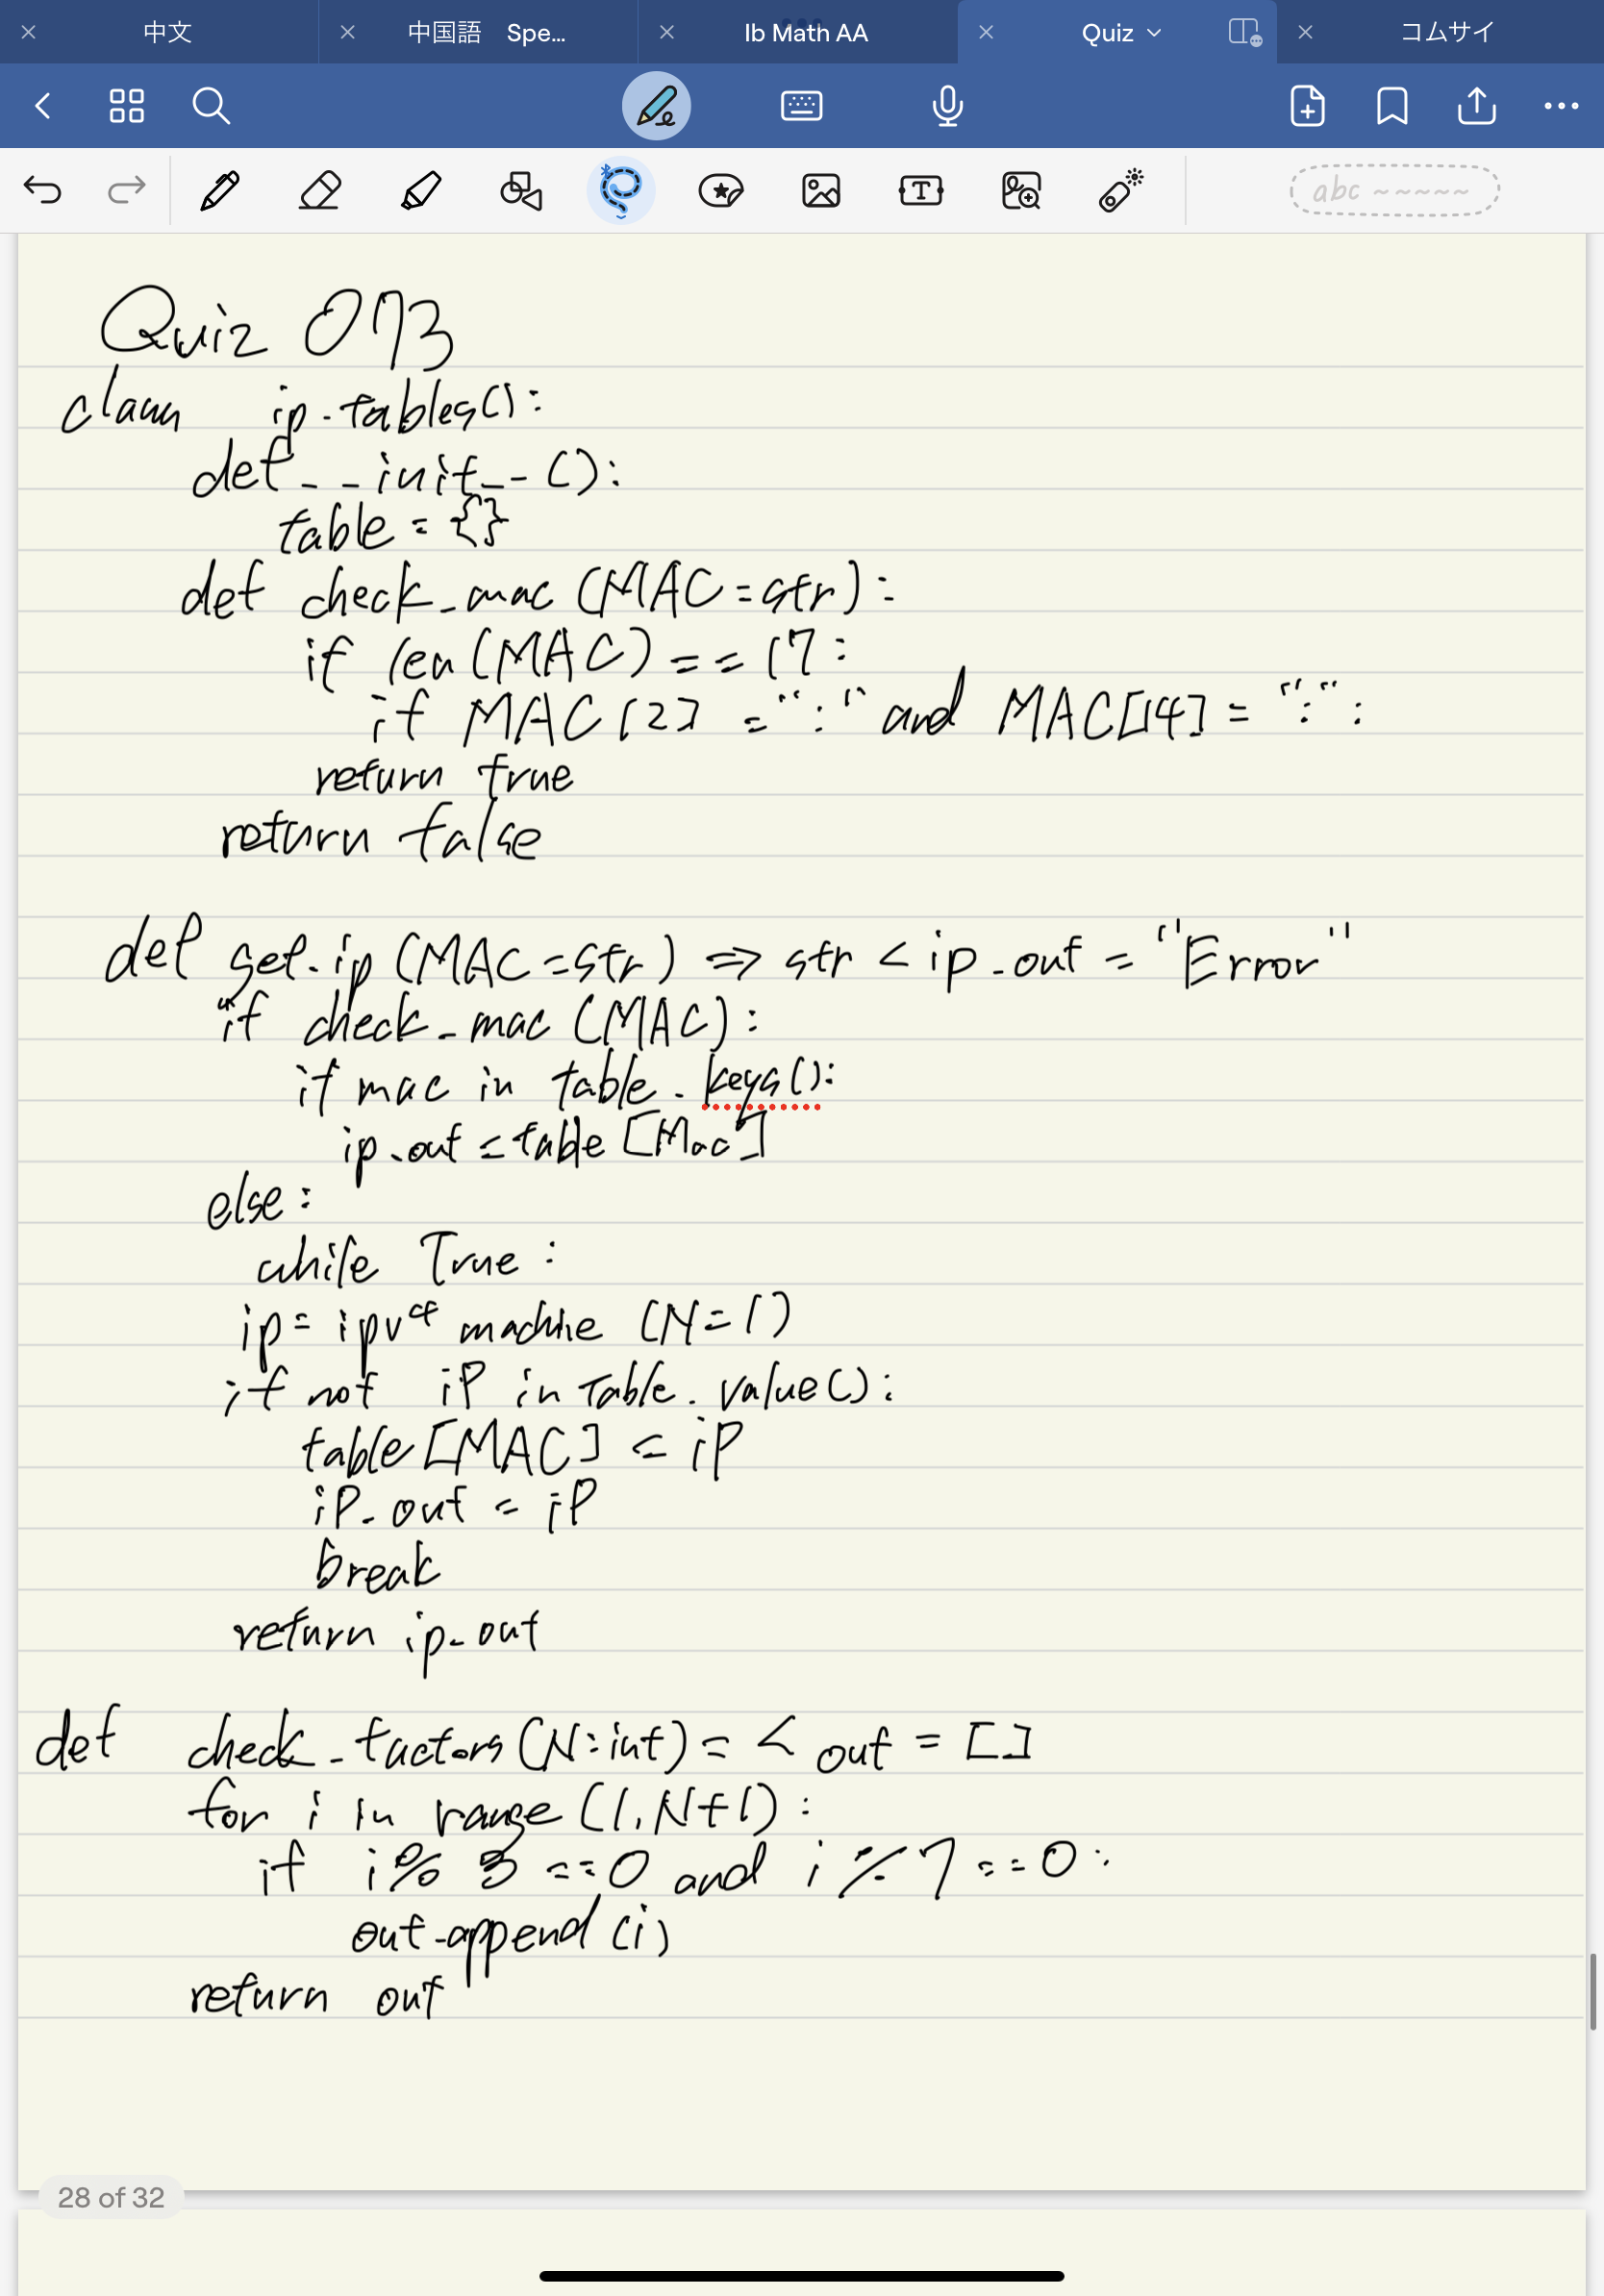 中文
中国語 Spe...
Ib Math AA
Quiz
コムサイ
abc
Quiz 073
class ip-tables():
def __init__():
table = {}
def check_mac (MAC=str):
if len(MAC) == 17:
if MAC[2] = ":" and MAC[14] = ":":
return true
return false
def get-ip (MAC=str) => str < ip_out = "Error"
if check_mac (MAC):
if mac in table.keys():
ip_out = table [Mac]
else:
while True:
ip = ipv4 machine (N=1)
if not iP in table.value():
table [MAC] = iP
iP_out = iP
break
return ip_out
def check_factors (N:int) = < out = []
for i in range (1, N+1):
if i % 3 == 0 and i % 7 == 0:
out-append (i)
return out
28 of 32